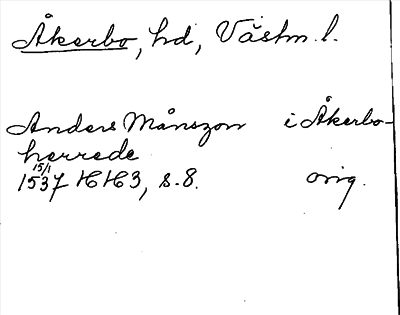 Åkerbo, hd, Västm. l.
Anders Månszon i Åkerbo-
herrede
15/1
1537 HH3, s. 8. orig.